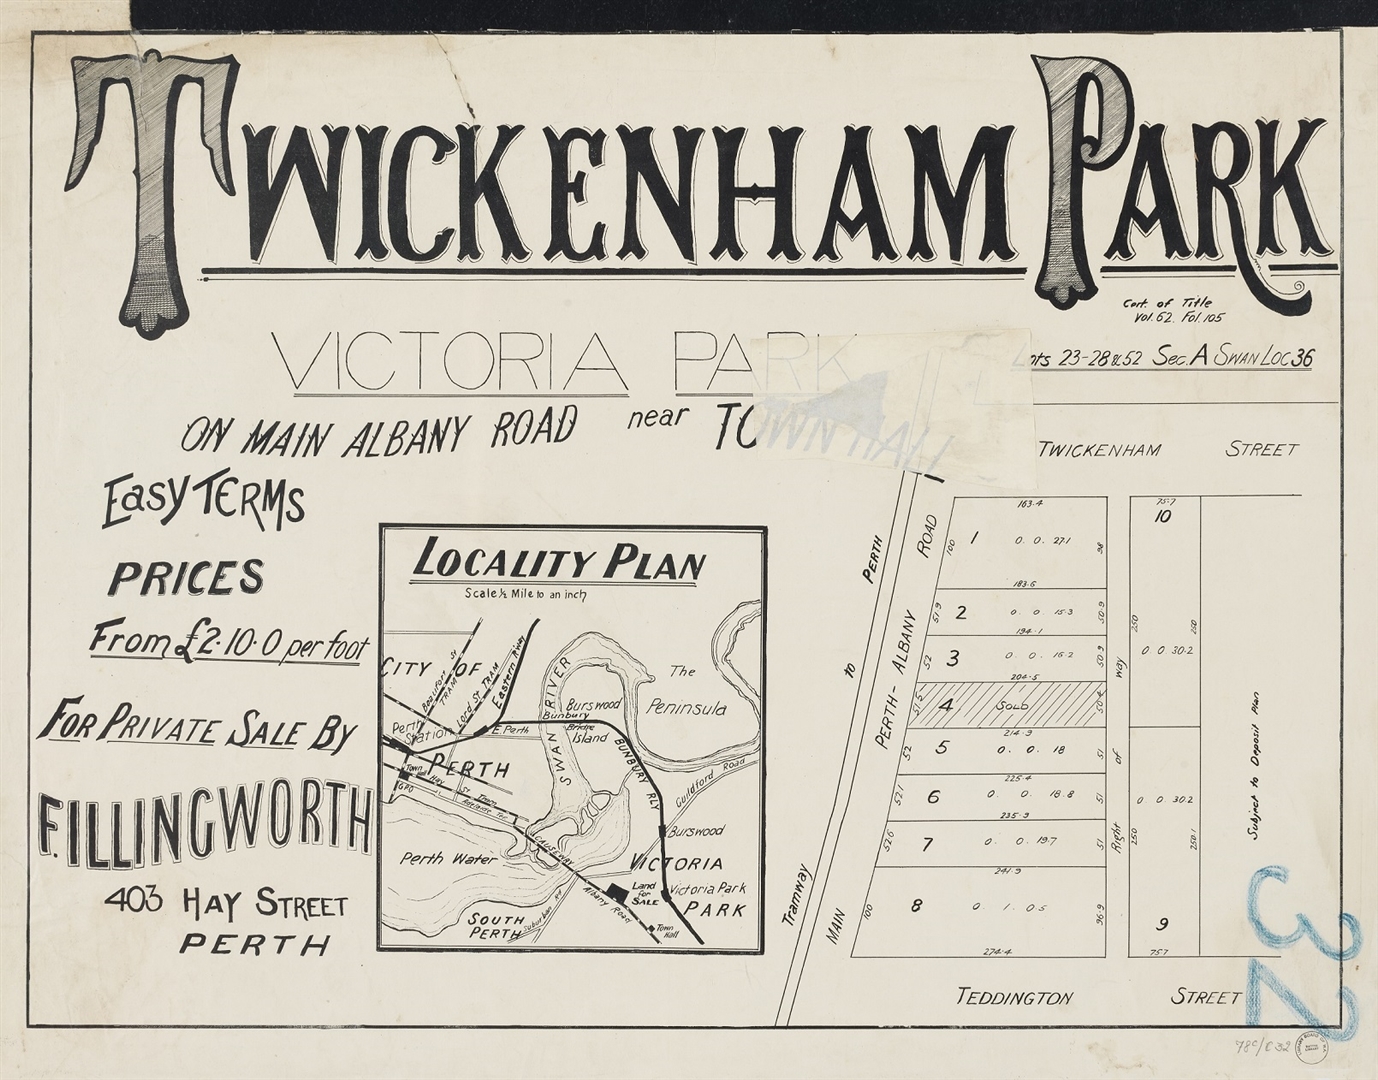 TWICKENHAM PARK
Cert. of Title
Vol. 62. Fol. 105
VICTORIA PARK
Lots 23-28 & 52 Sec. A SWAN LOC 36
ON MAIN ALBANY ROAD near TOWN HALL
EASY TERMS
PRICES
From £2·10·0 per foot
FOR PRIVATE SALE BY
F. ILLINGWORTH
403 HAY STREET
PERTH
LOCALITY PLAN
Scale ½ Mile to an inch
CITY OF
PERTH
Beaufort St
TRAM
Lord St TRAM
Eastern R'way
Perth
Station
E. Perth
Town Hall
G.P.O
Hay St Tram
Adelaide Ter
SWAN RIVER
Bunbury
Bridge
Burswood
Island
The
Peninsula
BUNBURY RLY
Guildford Road
Burswood
VICTORIA
PARK
Victoria Park
Perth Water
CAUSEWAY
Albany Road
Land
for
SALE
Town
Hall
SOUTH
PERTH
Suburban
TWICKENHAM STREET
Tramway TO PERTH
MAIN PERTH-ALBANY ROAD
163·4
100 1 0. 0. 27.1 98
183·6
51·9 2 0. 0. 15.3 50·9
194·1
52 3 0. 0. 16.2 50·9
204·5
51·5 4 SOLD 50·4
214·9
52 5 0. 0. 18 51
225·4
52·1 6 0. 0. 18.8 51
235·9
52·6 7 0. 0. 19.7 51
241·9
100 8 0. 1. 0.5 96·9
274·4
Right of way
75·7
10
250 0 0 30.2 250
250 0 0 30.2 250·1
9
75·7
Subject to Deposit Plan
TEDDINGTON STREET
32
78C/E32